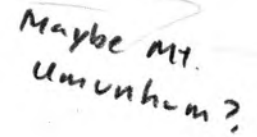 Maybe Mt.
Umunhum?